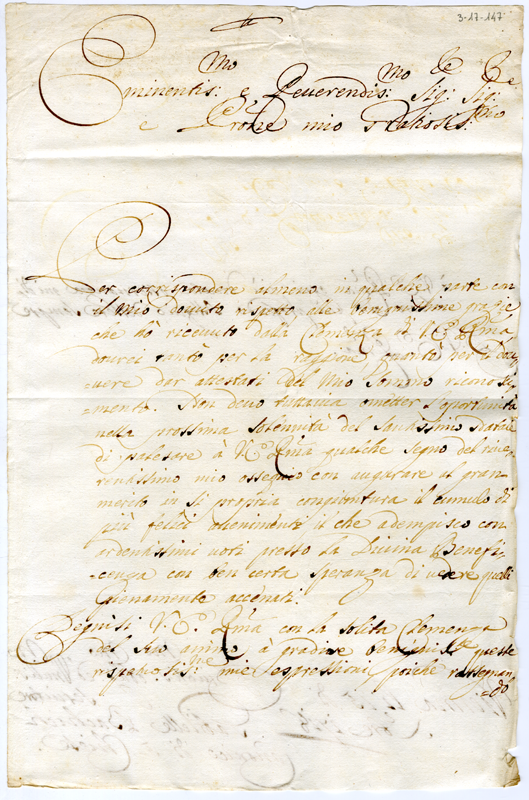 3-17-147
Eminentis:mo e Reuerendis:mo Sig:re Sig:re
e Prone mio Gratiosis:mo
Per corrispondere almeno in qualche parte con
il Mio douuto rispetto alle benignissime gratie
che hò riceuuto dalla Clemenza di V:ra Em̃a
dourei tantò per la raggione, quantò per il do-
uere dar attestati del Mio riconosci-
-mento. Non deuo tuttauia ometter l'oportunità
nella prossima solennità del Santissimo Natale
di palesare à V:ra Em̃a qualche segno del riue-
rendissimo mio ossequio con augurare al gran
merito in si propria congiuntura il cumulo di
più felici auenimenti il che adempisco con
ardentissimi uoti presso la Diuina Benefi-
-cenza con ben certa speranza di uedere quelli
pienamente
Degnisi V:ra Em̃a con la solita Clemenza
del Suo animo à gradire queste
mie espressioni, poiche rassegnan-
-do